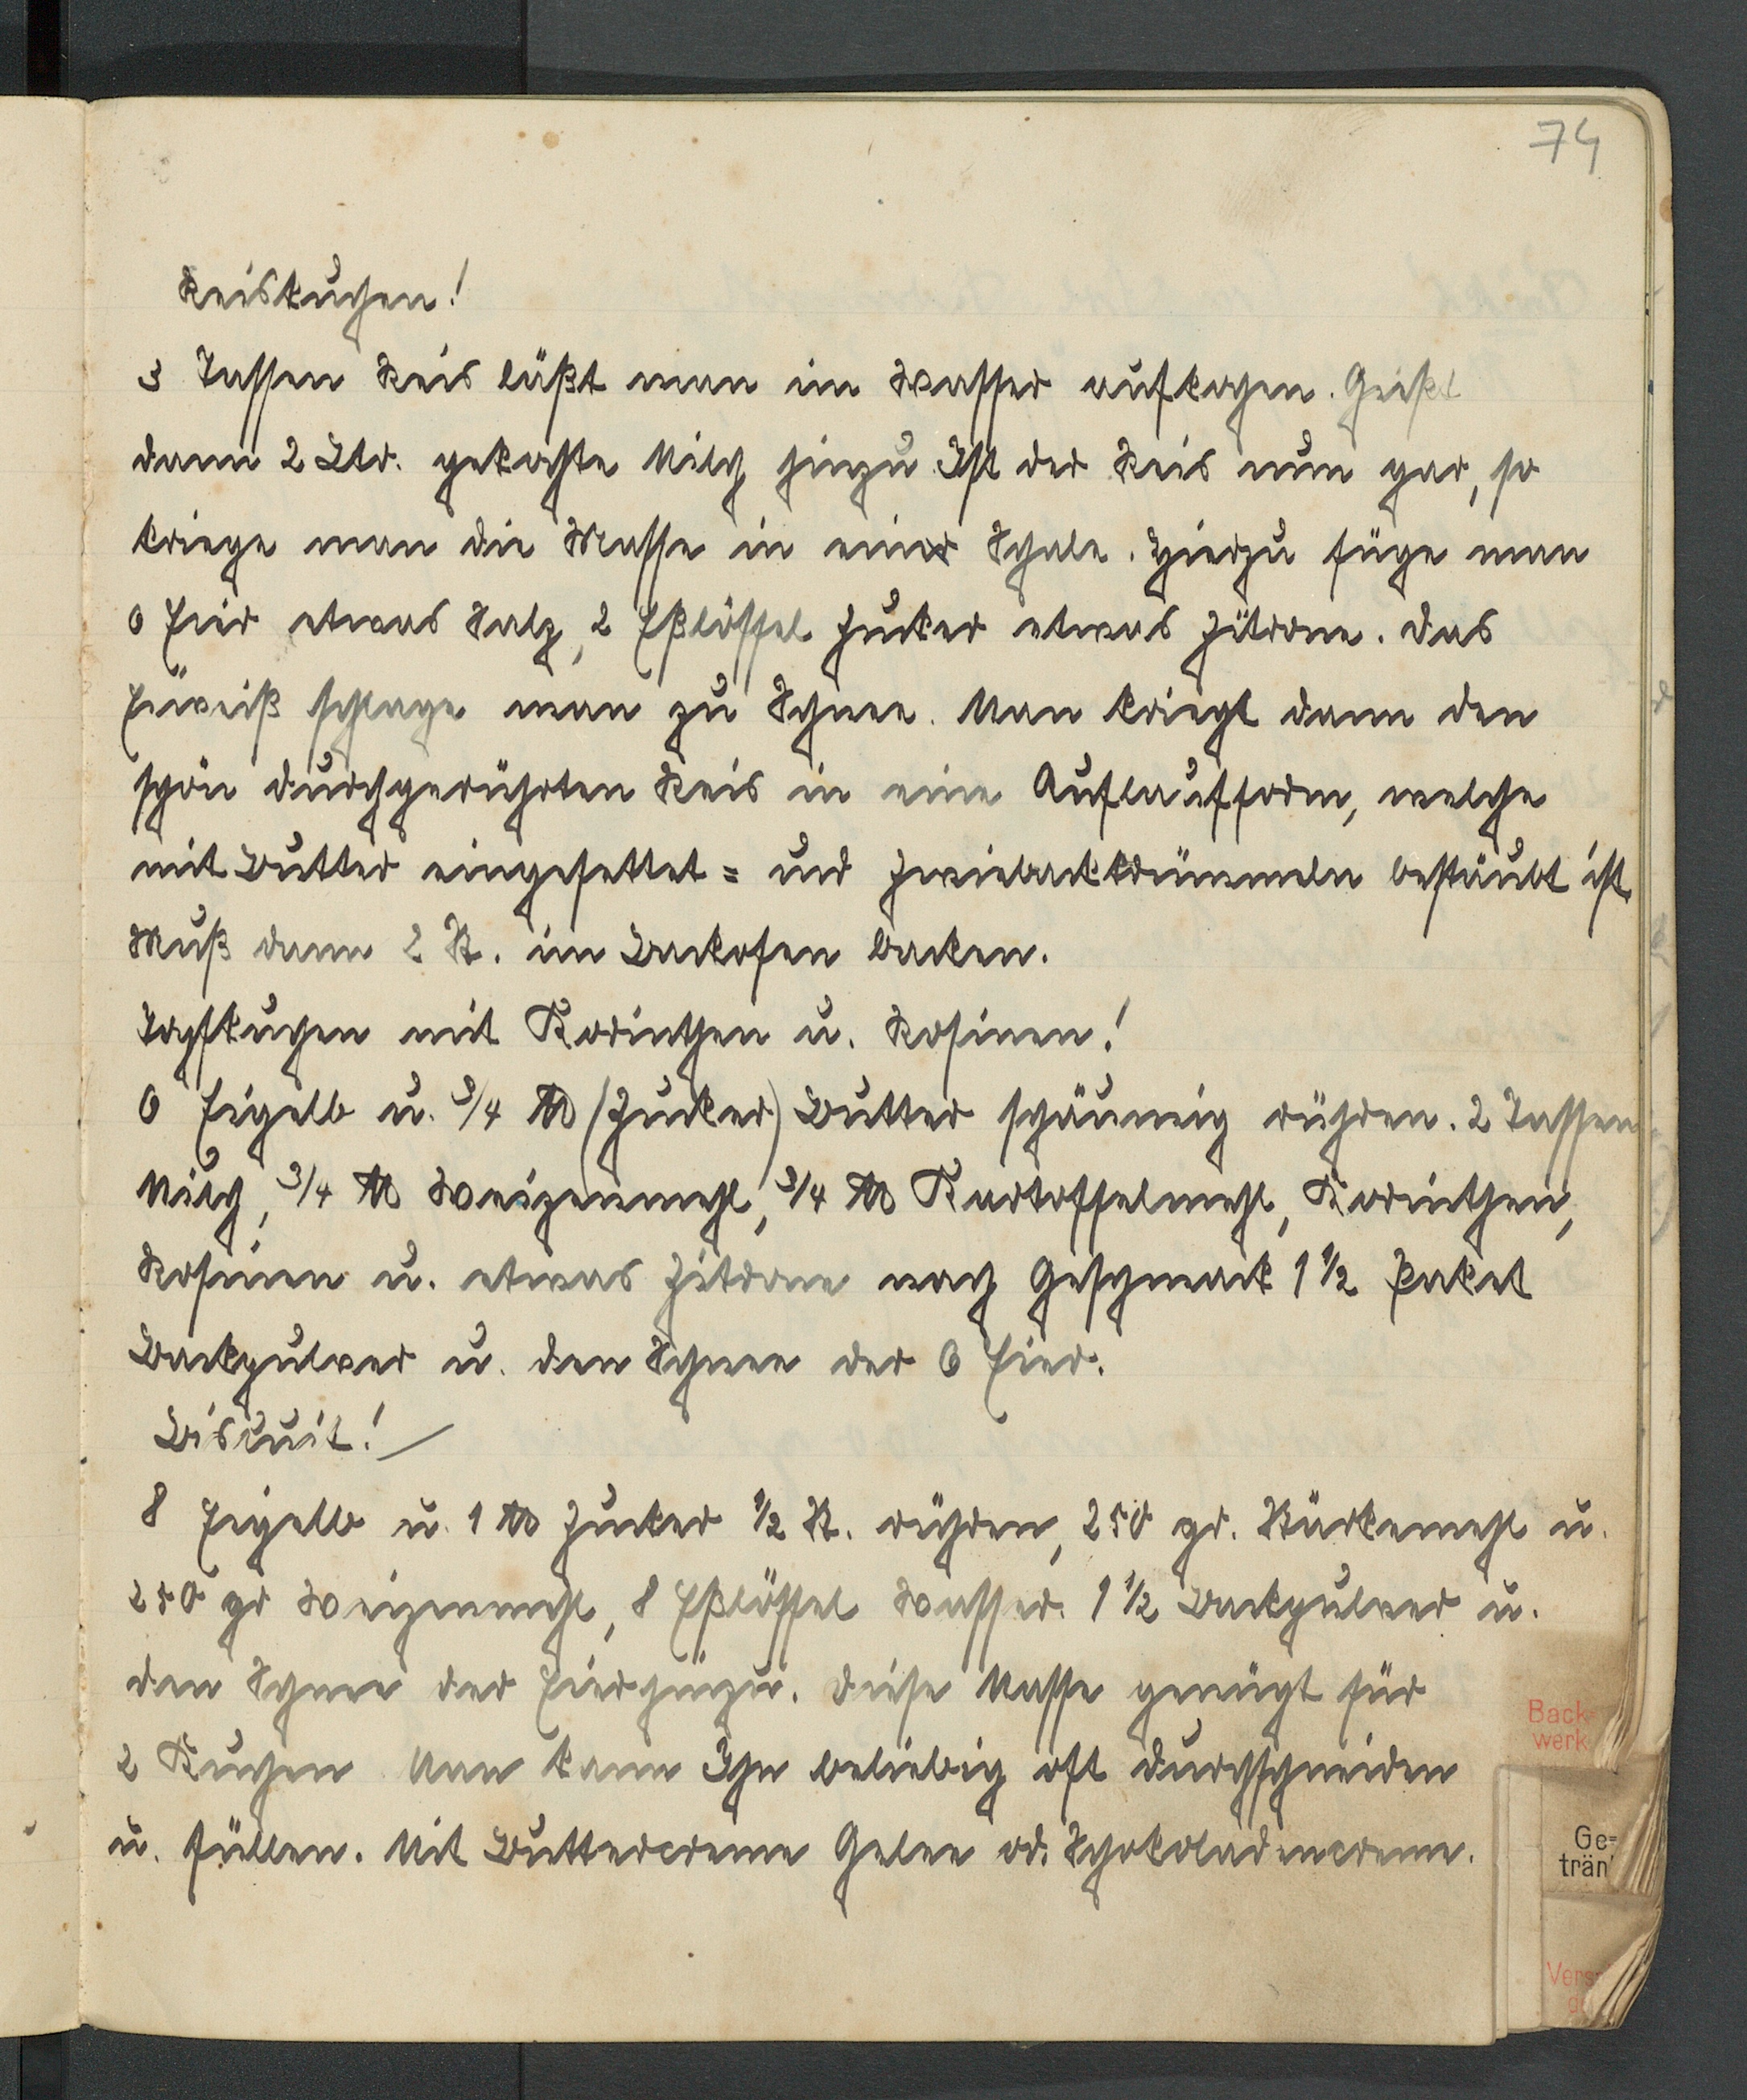 74
Reiskuchen!
3 Tassen Reis läßt man im Wasser aufkochen. Gießt
dann 2 Ltr. gekochte Milch hinzu. Ist der Reis nun gar, so
kriege man die Masse in einer Schale. Hierzu füge man
6 Eier etwas Salz, 2 Eßlöffel Zucker etwas Zitrone. Das
Eiweiß schlage man zu Schnee. Man kriegt dann den
schön durchgerührten Reis in eine Auflaufform, welche
mit Butter eingefettet = und Zwiebackkrümmeln bestäubt ist.
Muß dann 2 St. im Backofen backen.
Topfkuchen mit Korinthen u. Rosinen!
6 Eigelb u. 3/4 ℔ (Zucker) Butter schäumig rühren. 2 Tassen
Milch, 3/4 ℔ Weizenmehl, 3/4 ℔ Kartoffelmehl, Korinthen,
Rosinen u. etwas Zitrone nach Geschmack 1 1/2 Paket
Backpulver u. den Schnee der 6 Eier.
Biscuit!
8 Eigelb u. 1 ℔ Zucker 1/2 St. rühren, 250 gr. Stärkemehl u.
250 gr Weizenmehl, 8 Eßlöffel Wasser. 1 1/2 Backpulver u.
den Schnee der Eier hinzu. Diese Masse genügt für
2 Kuchen Man kann Ihn beliebig oft durchschneiden
u. füllen. Mit Buttercreme Gelee od. Schokoladencreme.
Back-
werk
Ge=
trän
Vers